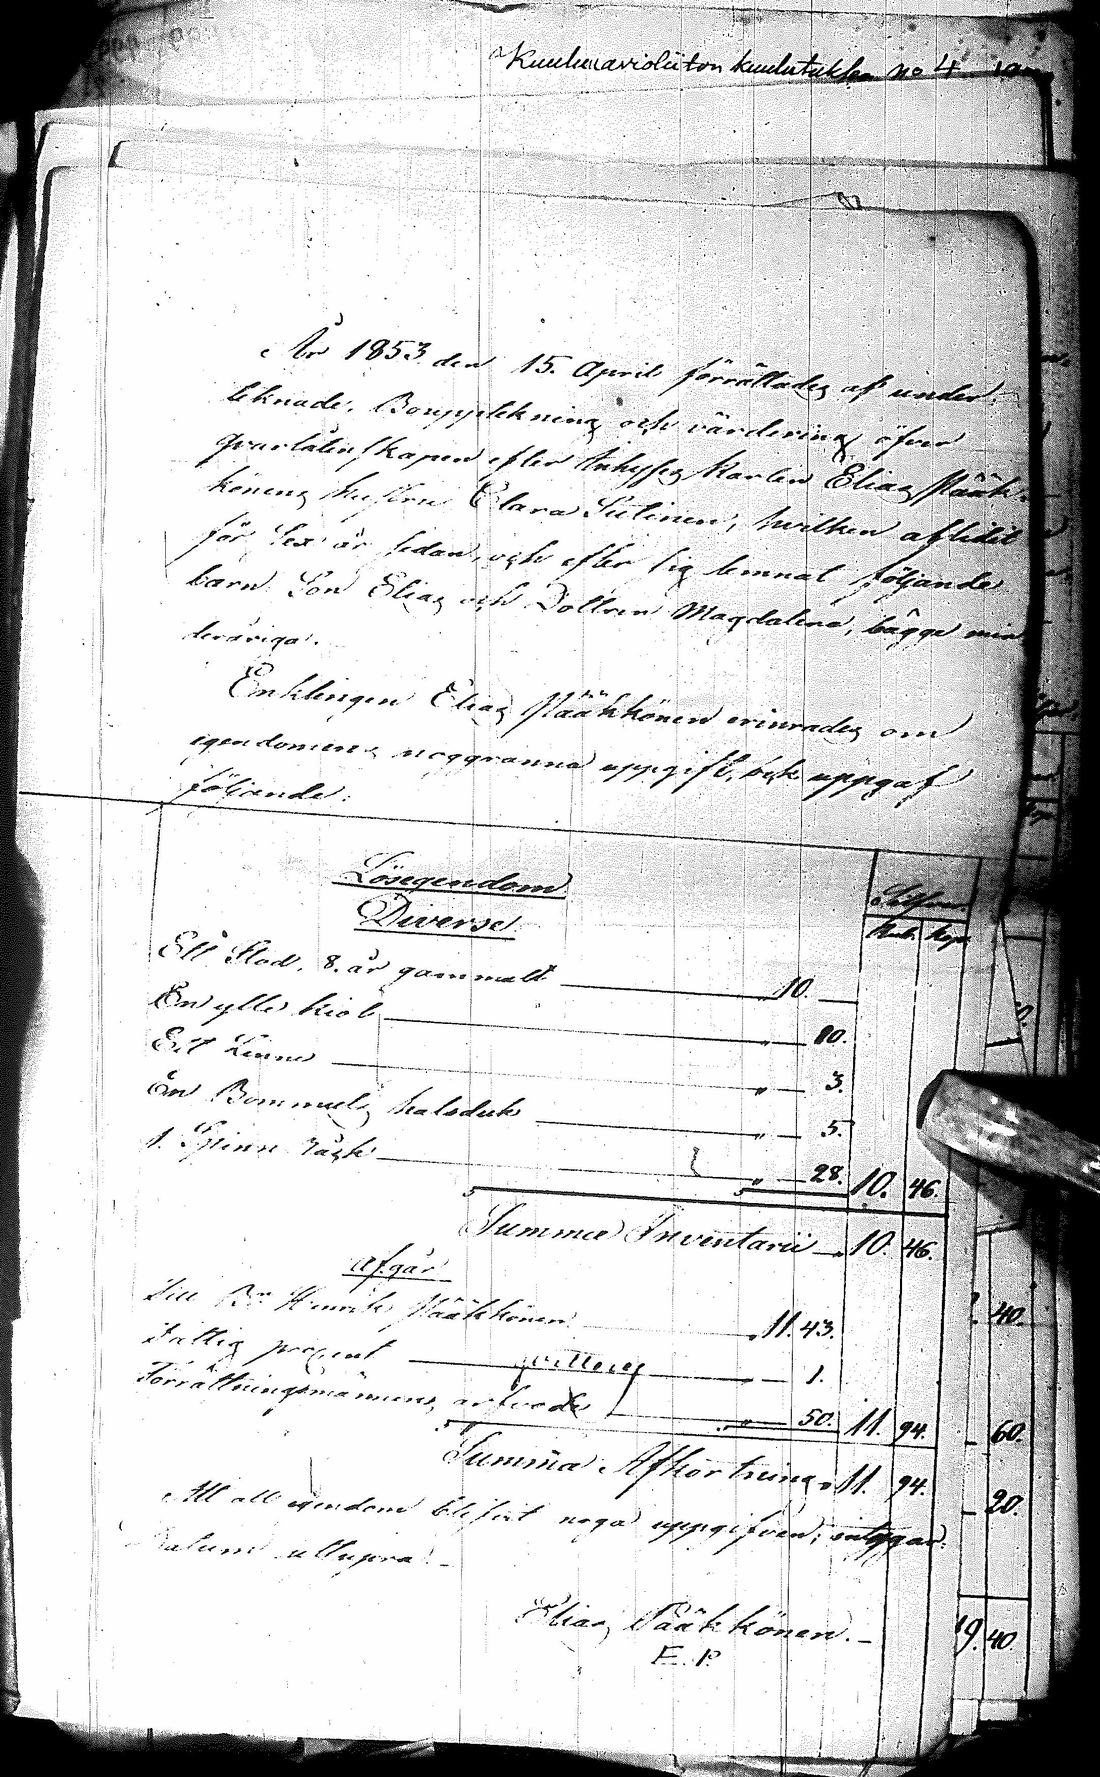 kuulutuksen no 4
År 1853 den 15. April förrättades af under
teknade, Bouppteckning och värdering öfver
qvarlåtenskapen efter Inhyses Karlen Elias Pääk-
könens hustru Clara Sutinen, hvilken aflidit
för Sex år sedan, och efter sig lemnat följande
barn Son Elias och Dottren Magdalena, bägge min
deråriga.
Enklingen Elias Pääkkönen erinrades om
egendomens noggranna uppgift, och uppgaf
följande:
Lösegendom
Diverse
Silfver
Rub. Kop.
Ett Stod, 8. år gammalt 10.
En ylle kiol " 10.
Ett Linne " 3.
En Bommuls halsduk " 5.
1. Spinn råck " 28. 10. 46.
Summa Inventarii 10. 46.
Afgår
Till Br. Henrik Pääkkönen 11. 43.
Fattig procent qvitteras " 1.
Förrättningsmännens arfvode " 50. 11. 94.
Summa Afkortning 11. 94.
Att all egendom blifvit noga uppgifven; intygar.
Datum utsupra.
Elias Pääkkönen.
E. P.
40.
60.
20.
19. 40.